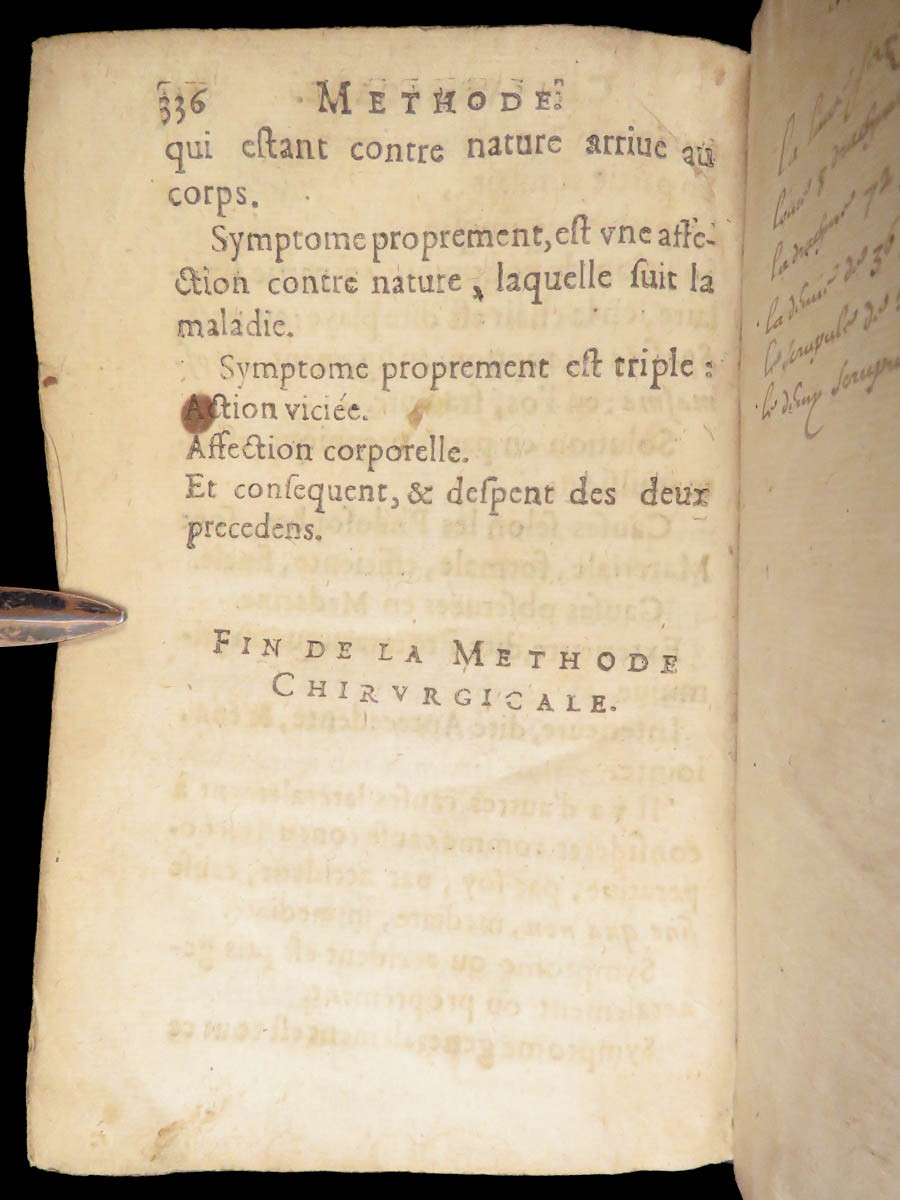 336 METHODE
qui eſtant contre nature arriue au
corps.
Symptome proprement, eſt vne affe-
ction contre nature, laquelle ſuit la
maladie.
Symptome proprement eſt triple:
Action viciée.
Affection corporelle.
Et conſequent, & deſpent des deux
precedens.
FIN DE LA METHODE
CHIRVRGICALE.
la
la dragme 72
la demie de 36
le scrupule de
le demy scrupule